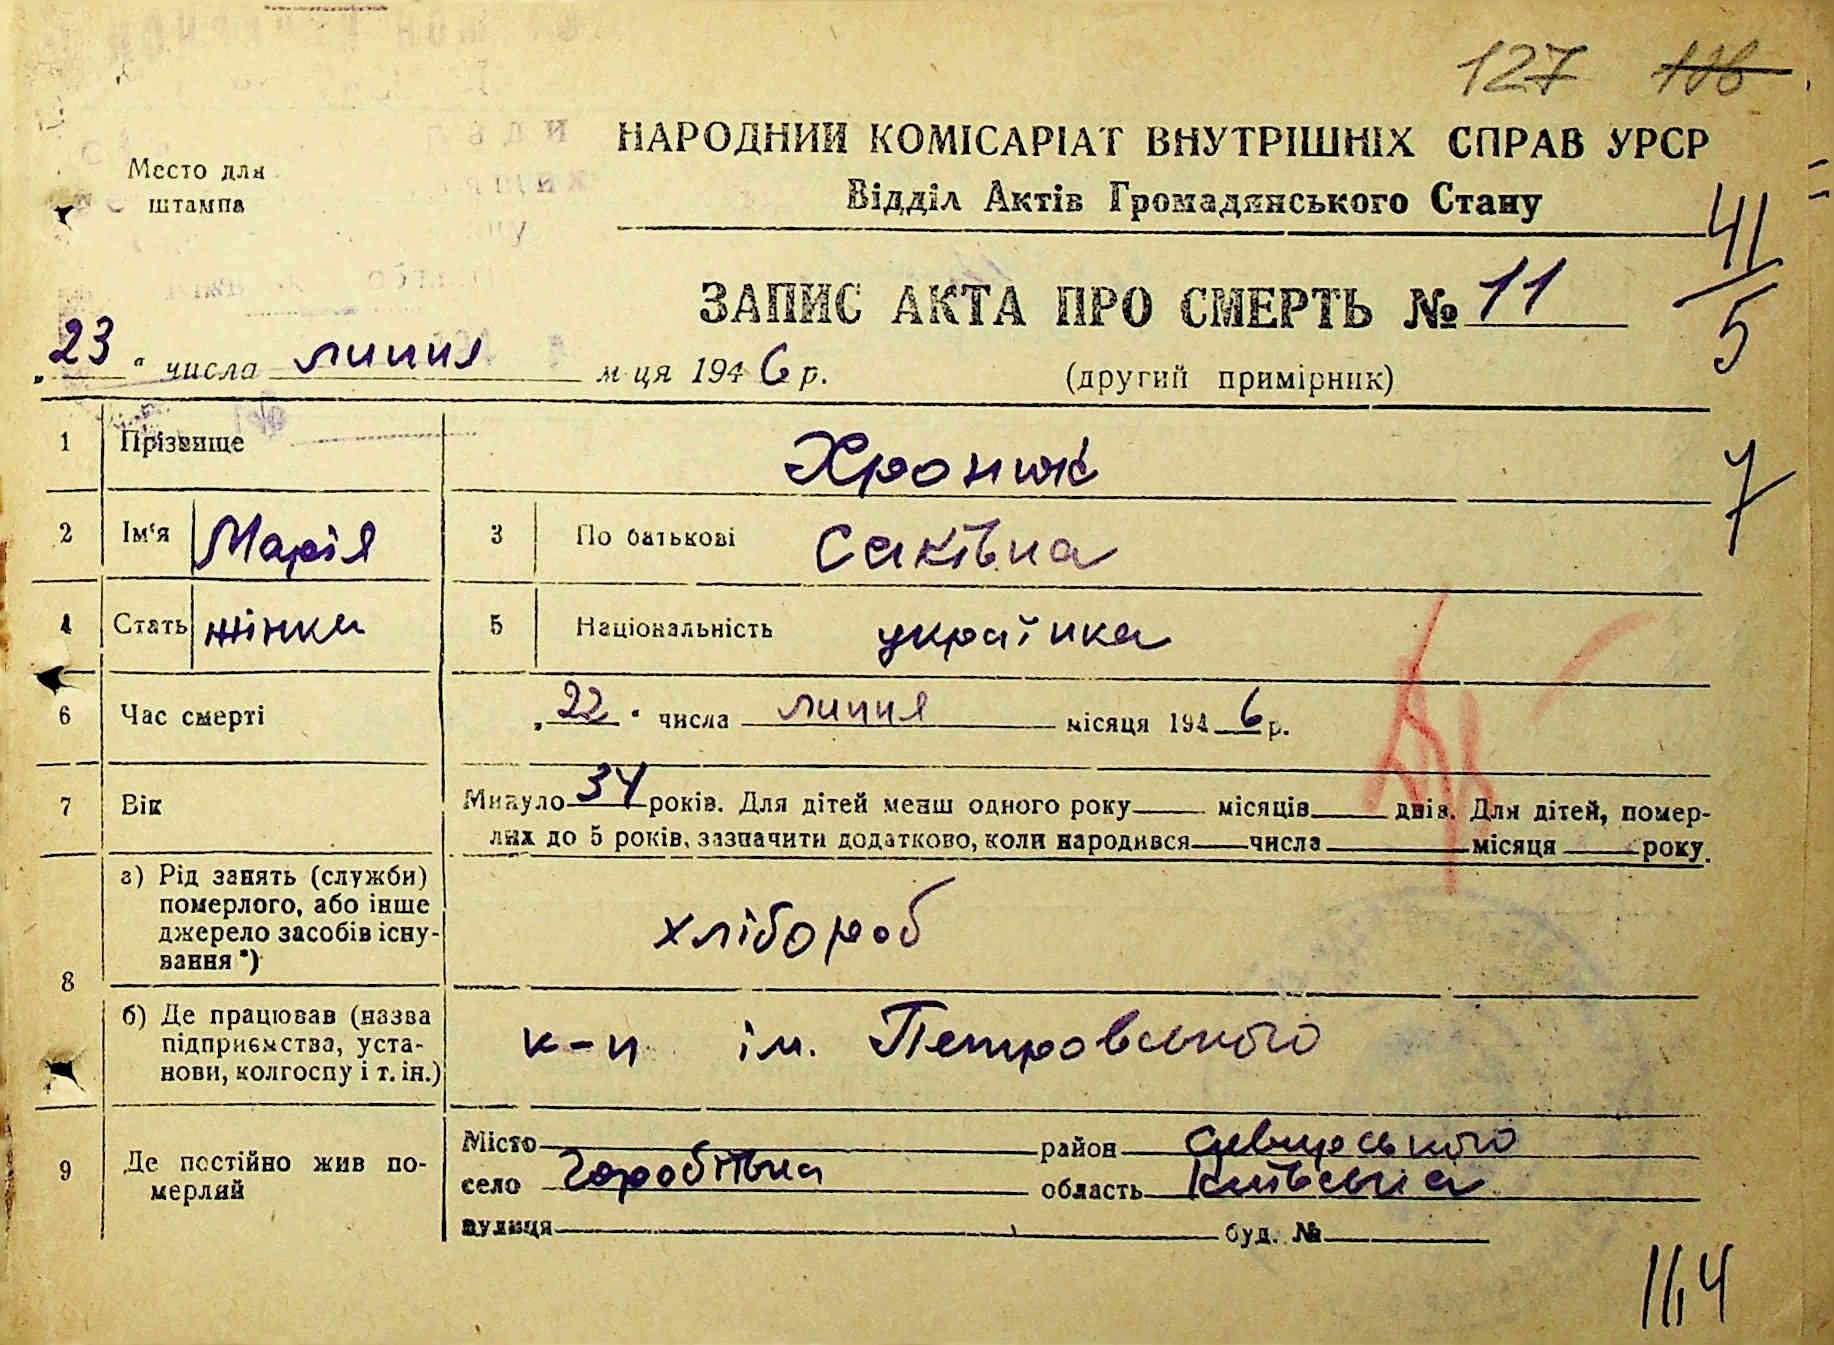 127 106
Место для
штампа
НАРОДНИЙ КОМІСАРІАТ ВНУТРІШНІХ СПРАВ УРСР
Відділ Актів Громадянського Стану
41/5
ЗАПИС АКТА ПРО СМЕРТЬ № 11
„23“ числа липня м ця 1946 р.
(другий примірник)
1 Прізвище Хронюк
7
2 Ім'я Марія 3 По батькові Саківна
4 Стать жінка 5 Національність українка
6 Час смерті „22“ числа липня місяця 1946 р.
7 Вік Минуло 34 років. Для дітей менш одного року місяців днів. Для дітей, помер-
лих до 5 років, зазначити додатково, коли народився числа місяця року.
8 а) Рід занять (служби)
померлого, або інше
джерело засобів існу-
вання *)
хлібороб
б) Де працював (назва
підприємства, уста-
нови, колгоспу і т. ін.)
к-п ім. Петровського
9 Де постійно жив по-
мерлий
Місто район
село Горобіївка область Київська
вулиця буд. №
114